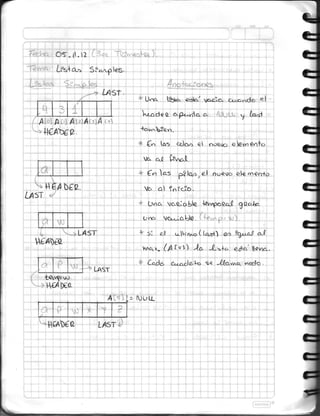 Fecha: 05.11.12
Tema: Listas Simples
Listas Simples
Anotaciones
LAST
4 3 1
A[0] A[1] A[2] A[3] A[4]
HEADER
* Una lista está vacía cuando el
header apunta a NULL y last
también.
* En las colas el nuevo elemento
va al final
* En las pilas, el nuevo elemento
va al inicio.
* Una variable temporal guarda
una variable
* Si el ultimo (last) es igual al
max, (A[+1]) la lista está llena.
* Cada cuadrito se llama nodo.
a
HEADER
LAST
a P w
LAST
HEADER
a P w
LAST
HEADER
A[+1] = NULL
a P w x y z
HEADER LAST